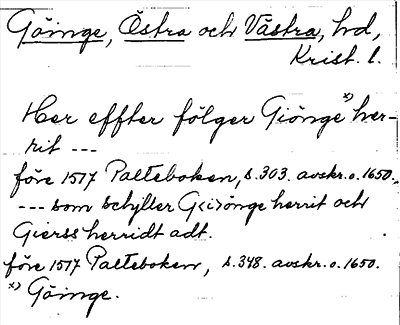 Göinge, Östra och Västra, hd,
Krist. l.
Her effter fölger Giönge x) her-
rit ---
före 1517 Palteboken, s. 303. avskr. o. 1650.
--- som schyller G<i>önge herrit och
Gierss herridt adt.
före 1517 Palteboken, s. 348. avskr. o. 1650.
x) Göinge.